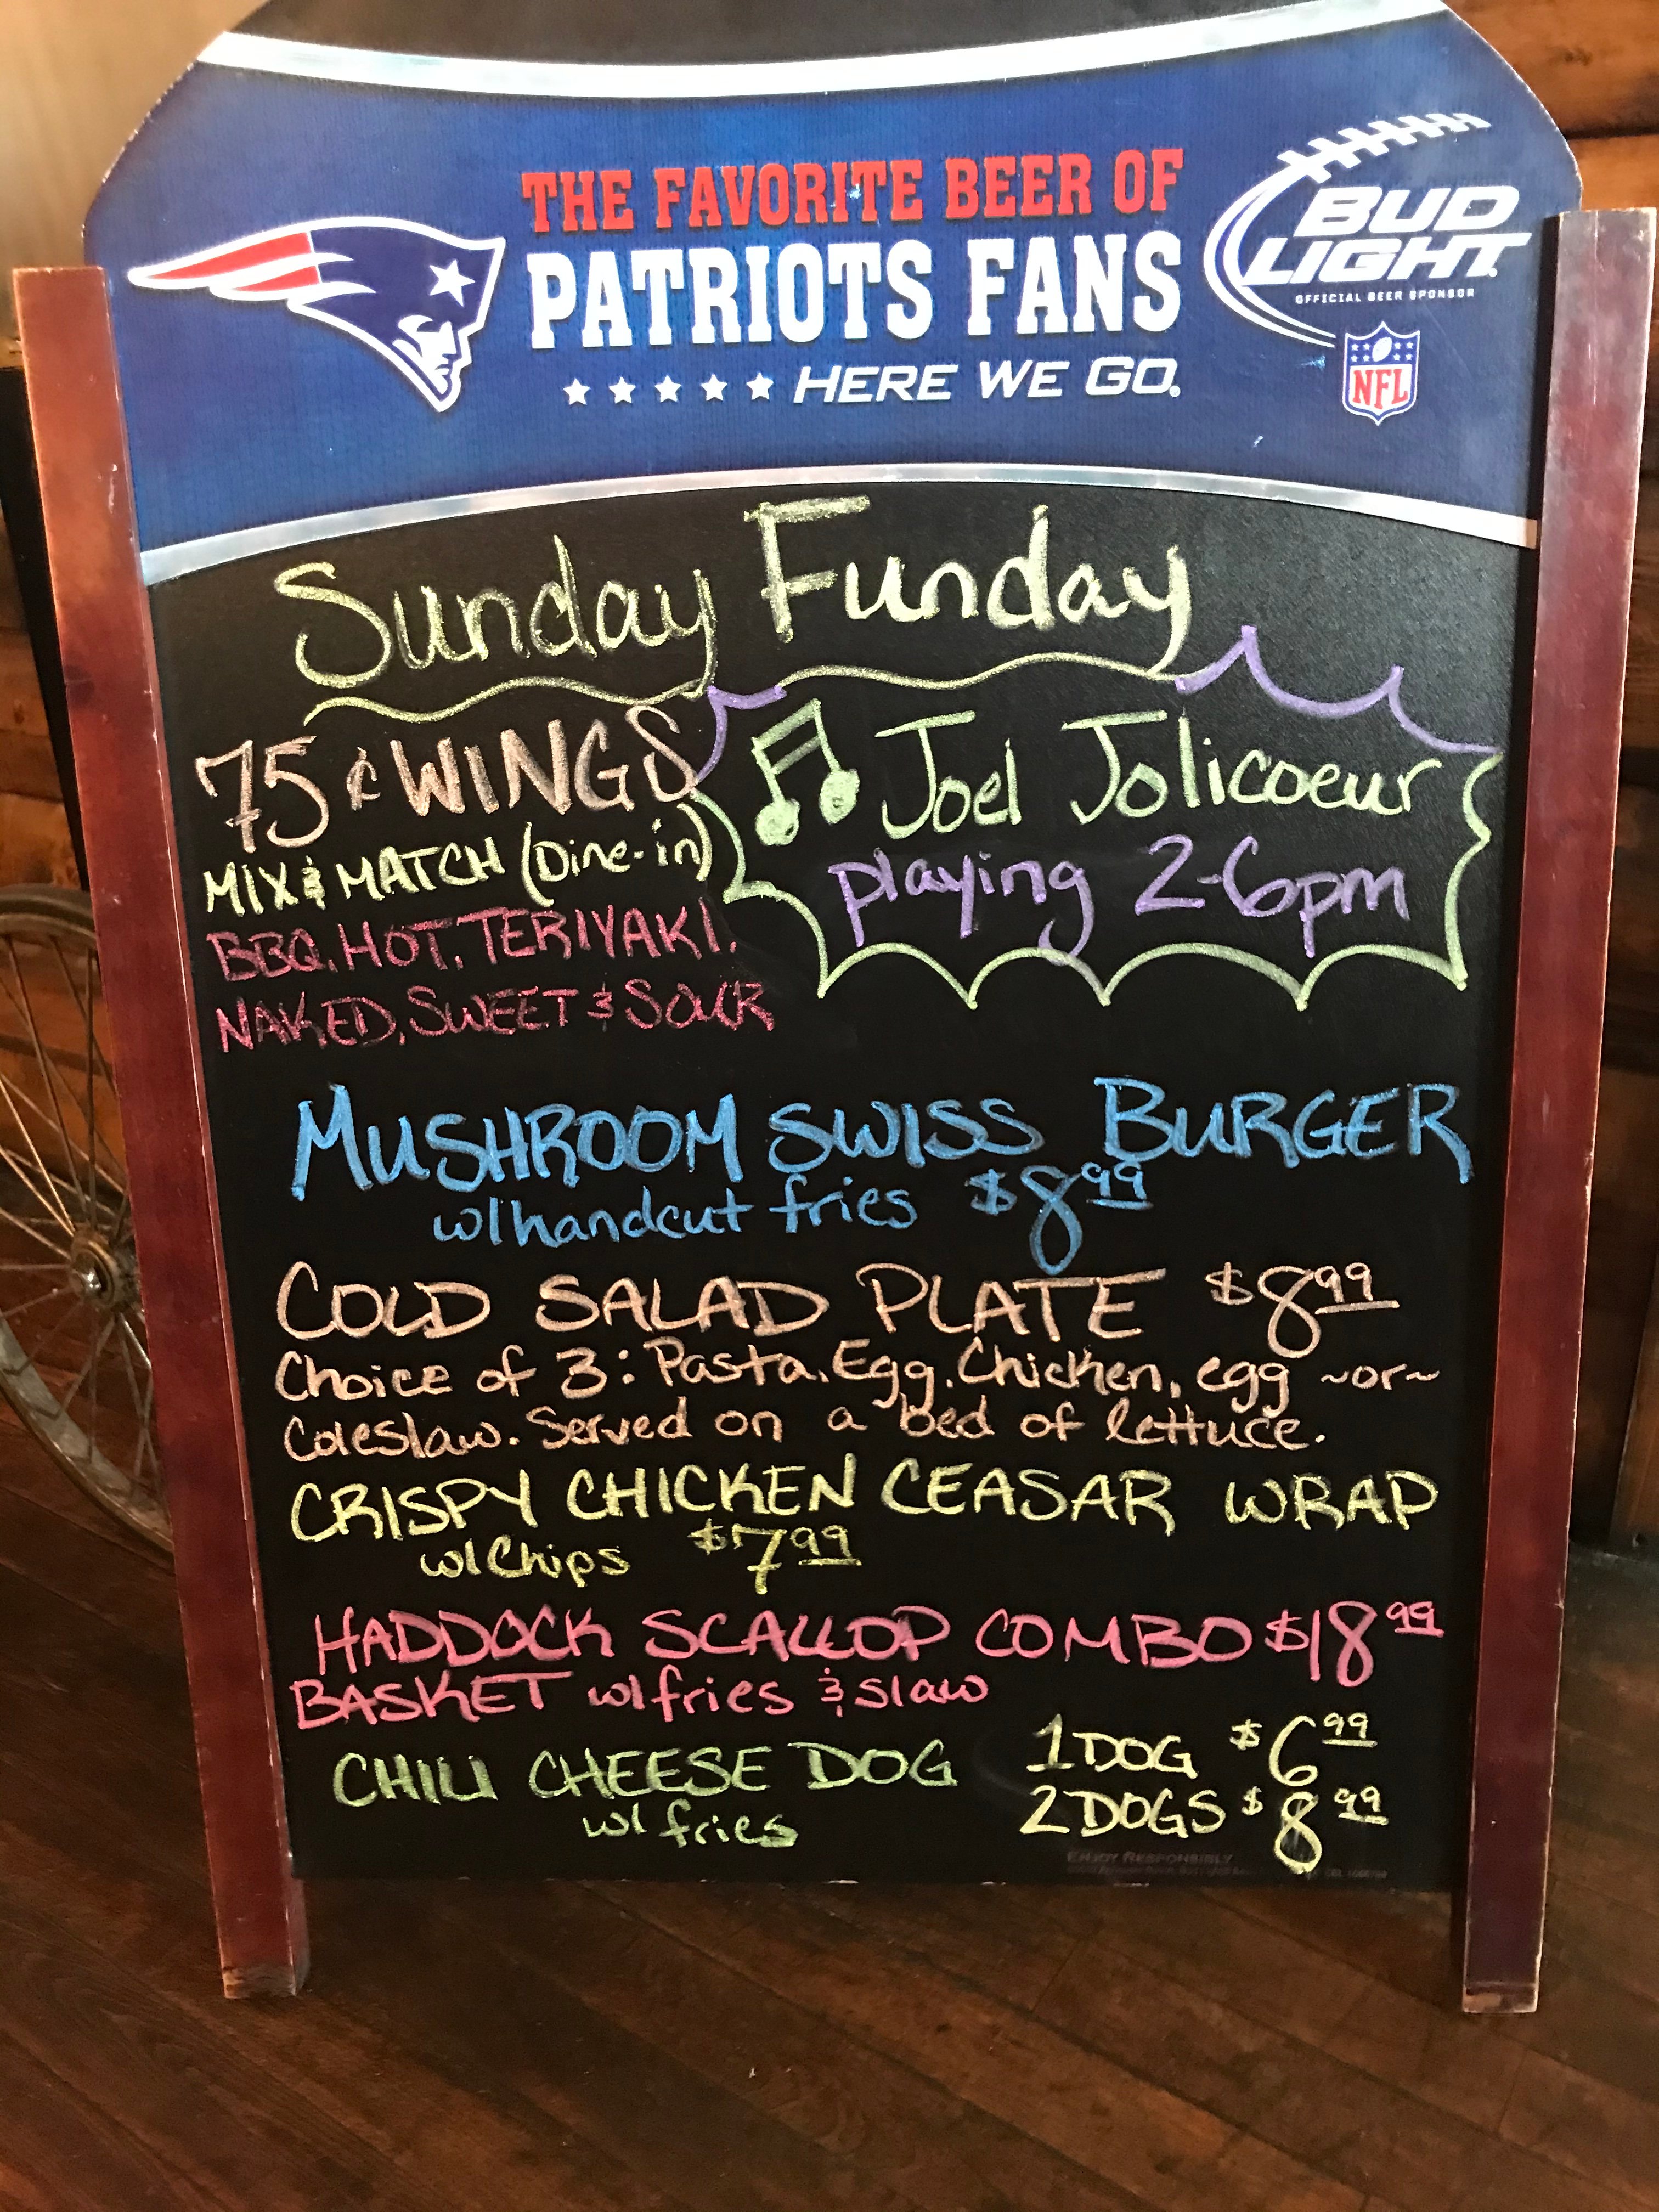 THE FAVORITE BEER OF
PATRIOTS FANS
HERE WE GO.
BUD
LIGHT
OFFICIAL BEER SPONSOR
NFL
Sunday Funday
75¢ WINGS
MIX & MATCH (Dine-in)
BBQ, HOT, TERIYAKI,
NAKED, SWEET & SOUR
Joel Jolicoeur
playing 2-6pm
MUSHROOM SWISS BURGER
w/handcut fries $8.99
COLD SALAD PLATE $8.99
Choice of 3: Pasta, Egg, Chicken, egg ~or~
Coleslaw. Served on a bed of lettuce.
CRISPY CHICKEN CEASAR WRAP
w/Chips $7.99
HADDOCK SCALLOP COMBO $18.99
BASKET w/fries & slaw
CHILI CHEESE DOG
w/ fries
1 DOG $6.99
2 DOGS $8.99
ENJOY RESPONSIBLY